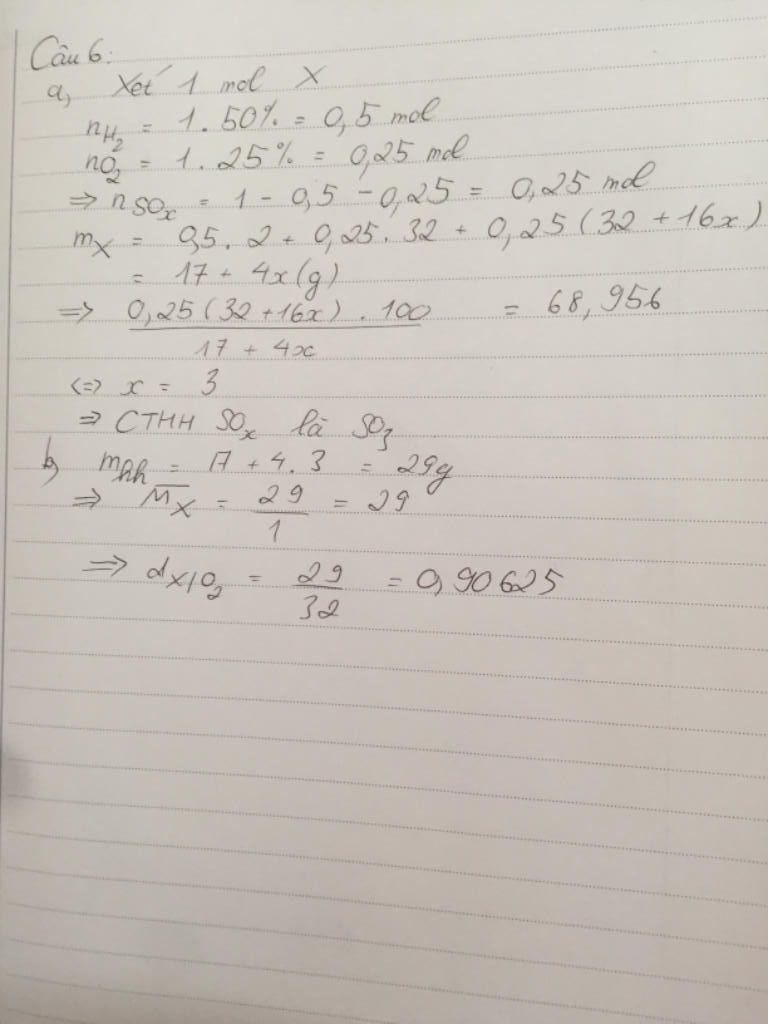 Câu 6:
a, Xét 1 mol X
nH₂ = 1.50% = 0,5 mol
nO₂ = 1.25% = 0,25 mol
=> nSOₓ = 1 - 0,5 - 0,25 = 0,25 mol
mX = 0,5.2 + 0,25.32 + 0,25(32 + 16x)
= 17 + 4x(g)
=> 0,25(32+16x).100 = 68,956
17 + 4x
<=> x = 3
=> CTHH SOₓ là SO₃
b, mhh = 17 + 4.3 = 29g
=> M̅X = 29 = 29
1
=> dX/O₂ = 29 = 0,90625
32